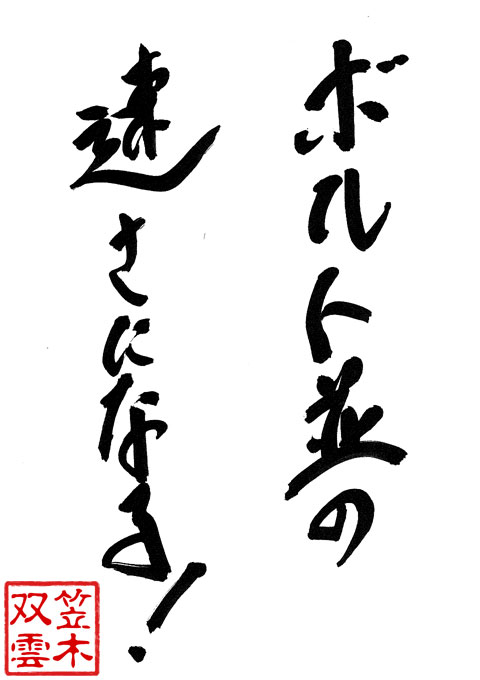 ボルト並の
速さになる!
笠木
双雲